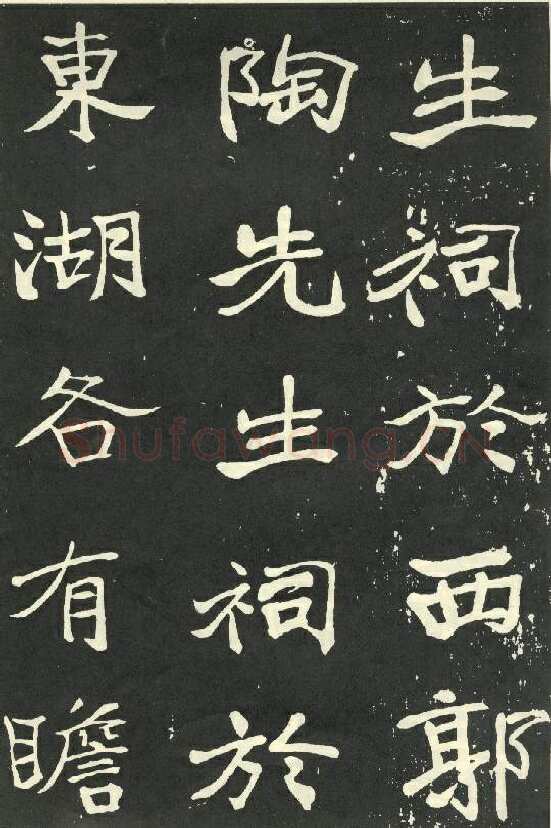 生祠於西郭
陶先生祠於
東湖各有瞻
Shufawang.CN